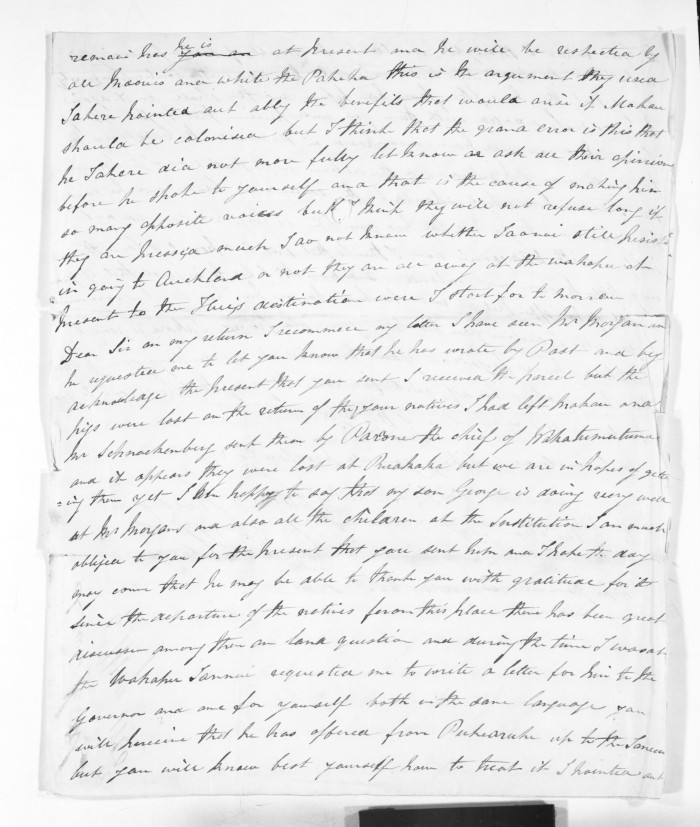 remain has he is you an at present and he will be respected by
all Maoris and white the Pakeha this is the argument they used
Tahere pointed out ably the benefits that would arise if Mahau
should be colonised but I think that the grand error is this that
he Tahere did not more fully let know or ask all their opinions
before he spoke to yourself and that is the cause of making him
so many opposite voices but I think they will not refuse long if
they are pressed much I do not know whether Taonui still persist
in going to Auckland or not they are all away at the wahapu at
present to the Thuis destination were I start for to morrow
Dear Sir on my return I recommence my letter I have seen Mr Morgan an
he requested me to let you know that he has wrote by Post and beg
acknowledge the present that you sent I received the parcel but the
pigs were lost on the return of the your natives I had left Mahau and
Mr Schnackenberg sent them by the chief of Wakatumutumu
and it appears they were lost at Puahaka but we are in hopes of gett
ing them yet I am happy to say that my son George is doing very well
at Mr Morgans and also all the children at the Institution I am much
obliged to you for the present that you sent him and I hope the day
may come that he may be able to thank you with gratitude for it
since the departure of the natives from this place there has been great
discussion among them on land question and during the time I was at
the Wahapu Taonui requested me to write a letter for him to the
Governor and one for yourself both in the same language you
will perceive that he has offered from Pukearuhe up to the
but you will know best yourself how to treat it I pointed out